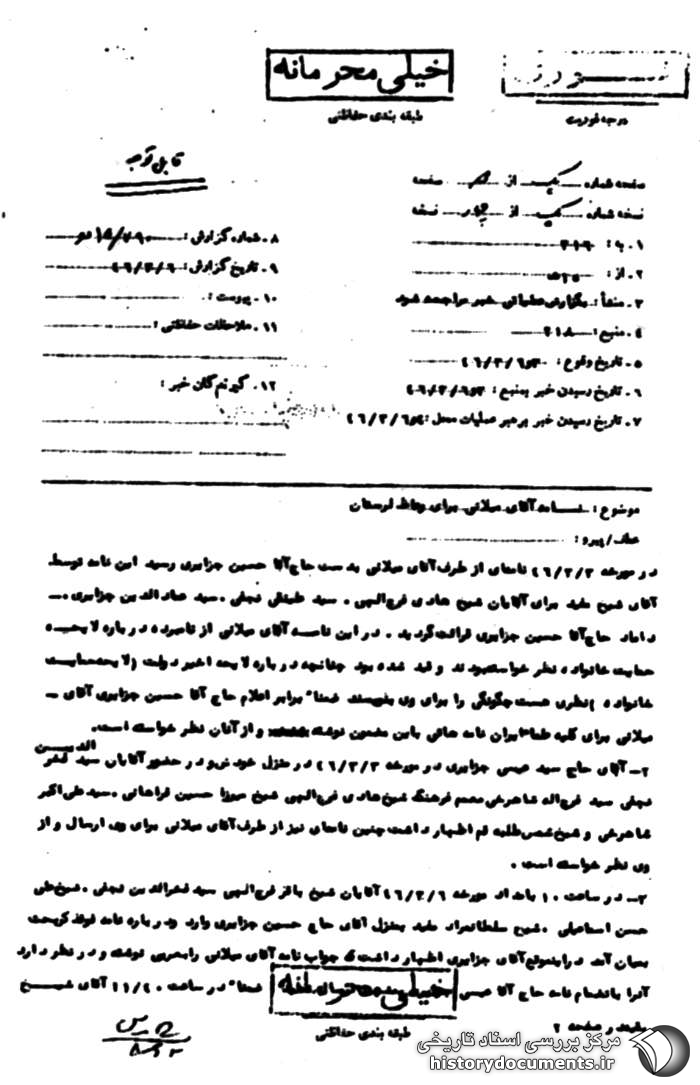 خیلی محرمانه
طبقه بندی حفاظتی
درجه فوریت
قابل توجه
صفحه شماره یک از صفحه
نسخه شماره یک از نسخه
۱ـ به : ۳۱۶
۲ـ از :
۳ـ منشأ :
۴ـ منبع : ۲۱۸۰
۵ـ تاریخ وقوع :
۶ـ تاریخ رسیدن خبر بمنبع :
۷ـ تاریخ رسیدن خبر برهبر عملیات محل :
۸ـ شماره گزارش :
۹ـ تاریخ گزارش : ۴۶/۳/۶
۱۰ـ پیوست :
۱۱ـ ملاحظات حفاظتی :
۱۲ـ گیرندگان خبر :
موضوع : نامه آقای میلانی برای وعاظ لرستان
عطف/پیرو :
در مورخه ۴۶/۳/۳ نامه‌ای از طرف آقای میلانی به دست حاج آقا حسین جزایری رسید این نامه توسط
آقای شیخ مفید برای آقایان شیخ هادی فرج‌الهی . سید نجفی . سید عمادالدین جزایری
داماد حاج آقا حسین جزایری قرائت گردید . در این نامه آقای میلانی از نامبرده درباره لایحه
حمایت خانواده نظر خواسته‌بودند و قید شده بود چنانچه درباره لایحه اخیر دولت (لایحه حمایت
خانواده ) نظری هست چگونگی را برای وی بنویسند ضمناً برابر اعلام حاج آقا حسین جزایری آقای ـ
میلانی برای کلیه علماء ایران نامه هائی باین مضمون نوشته و از آنان نظر خواسته است.
۲ـ آقای حاج سید عیسی جزایری در مورخه ۴۶/۳/۳ در منزل خودش و در حضور آقایان سید فخرالدین
نجفی سید فرج‌اله شاهرخی معمم فرهنگ شیخ هادی فرج‌الهی شیخ میرزا حسین فراهانی . سید علی‌اکبر
شاهرخی و شیخ طلبه قم اظهار داشت چنین نامه‌ای نیز از طرف آقای میلانی برای وی ارسال و از
وی نظر خواسته است .
در ساعت ۱۰ بامداد مورخه ۴۶/۳/۶ آقایان شیخ باقر فرج‌الهی سید فخرالدین نجفی . شیخ علی
حسن اسماعیلی . شیخ سلطانمراد مفید بمنزل آقای حاج حسین جزایری وارد ودرباره نامه فوق‌الذکر بحث
بمیان آمد دراینموقع آقای جزایری اظهار داشت که جواب نامه آقای میلانی را بعربی نوشته و در نظر دارد
آنرا بانضمام نامه حاج آقا عیسی ضمناً در ساعت ۱۱/۴۰ آقای شیخ
بقیه در صفحه ۲
خیلی محرمانه
طبقه بندی حفاظتی
مرکز بررسی اسناد تاریخی
historydocuments.ir